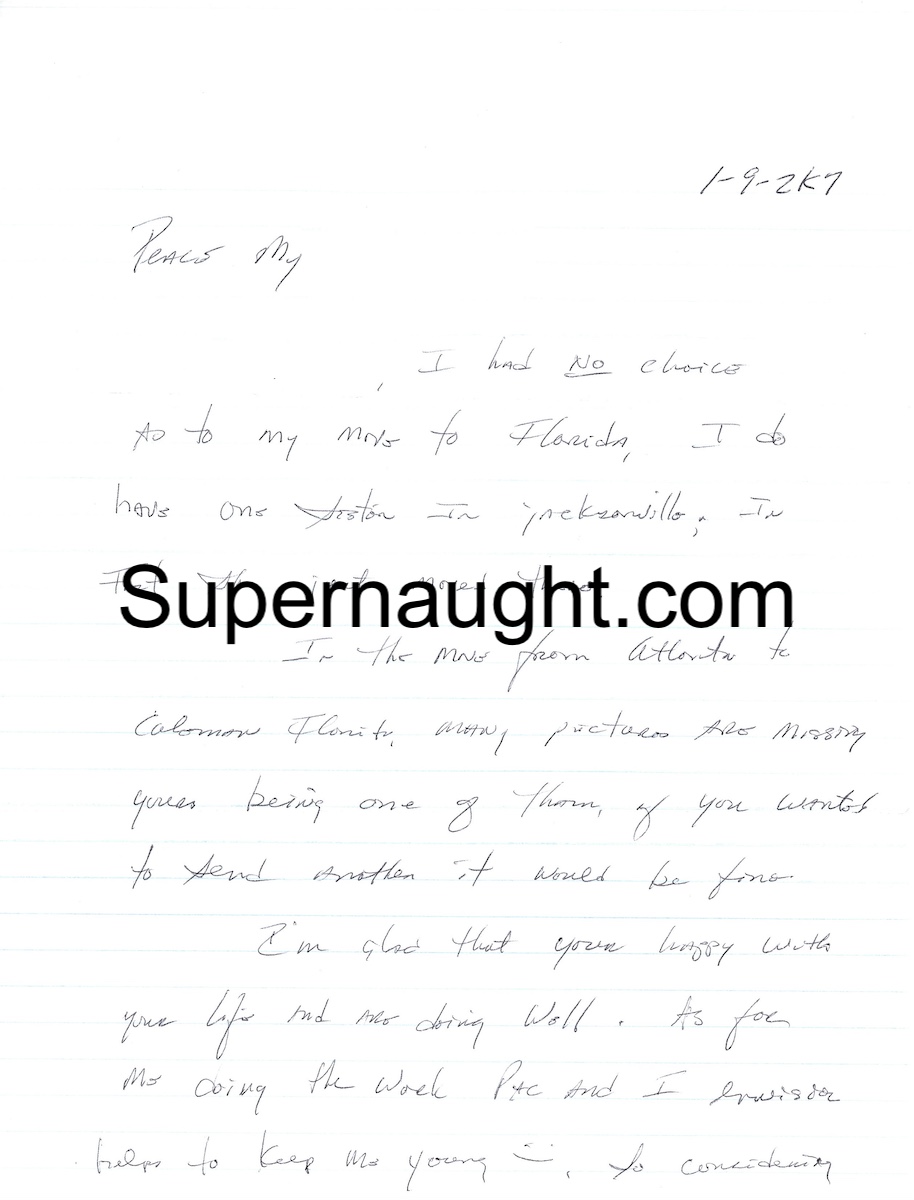 1-9-2K7
Peace My
, I had NO choice
As to my move to Florida, I do
have one sister In jacksonville, In
Supernaught.com
In the move from Atlanta to
Coleman Florida, many pictures Are Missing
yours being one of them, if you wanted
to send another it would be fine.
I'm glad that your happy with
your life and are doing Well. As for
Me doing the Work Pac and I envision
helps to keep me young :-), so considering